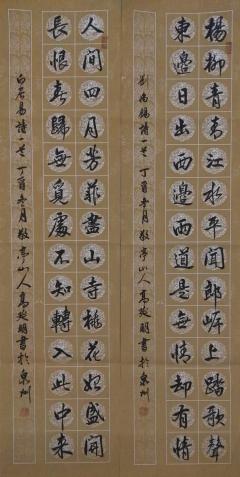 楊柳青青江水平聞郎岸上踏歌聲
東邊日出西邊雨道是無情卻有情
劉禹錫詩一首 丁酉冬月 敬亭山人高
人間四月芳菲盡山寺桃花始盛開
長恨春歸無覓處不知轉入此中來
白居易詩一首 丁酉冬月 敬亭山人高